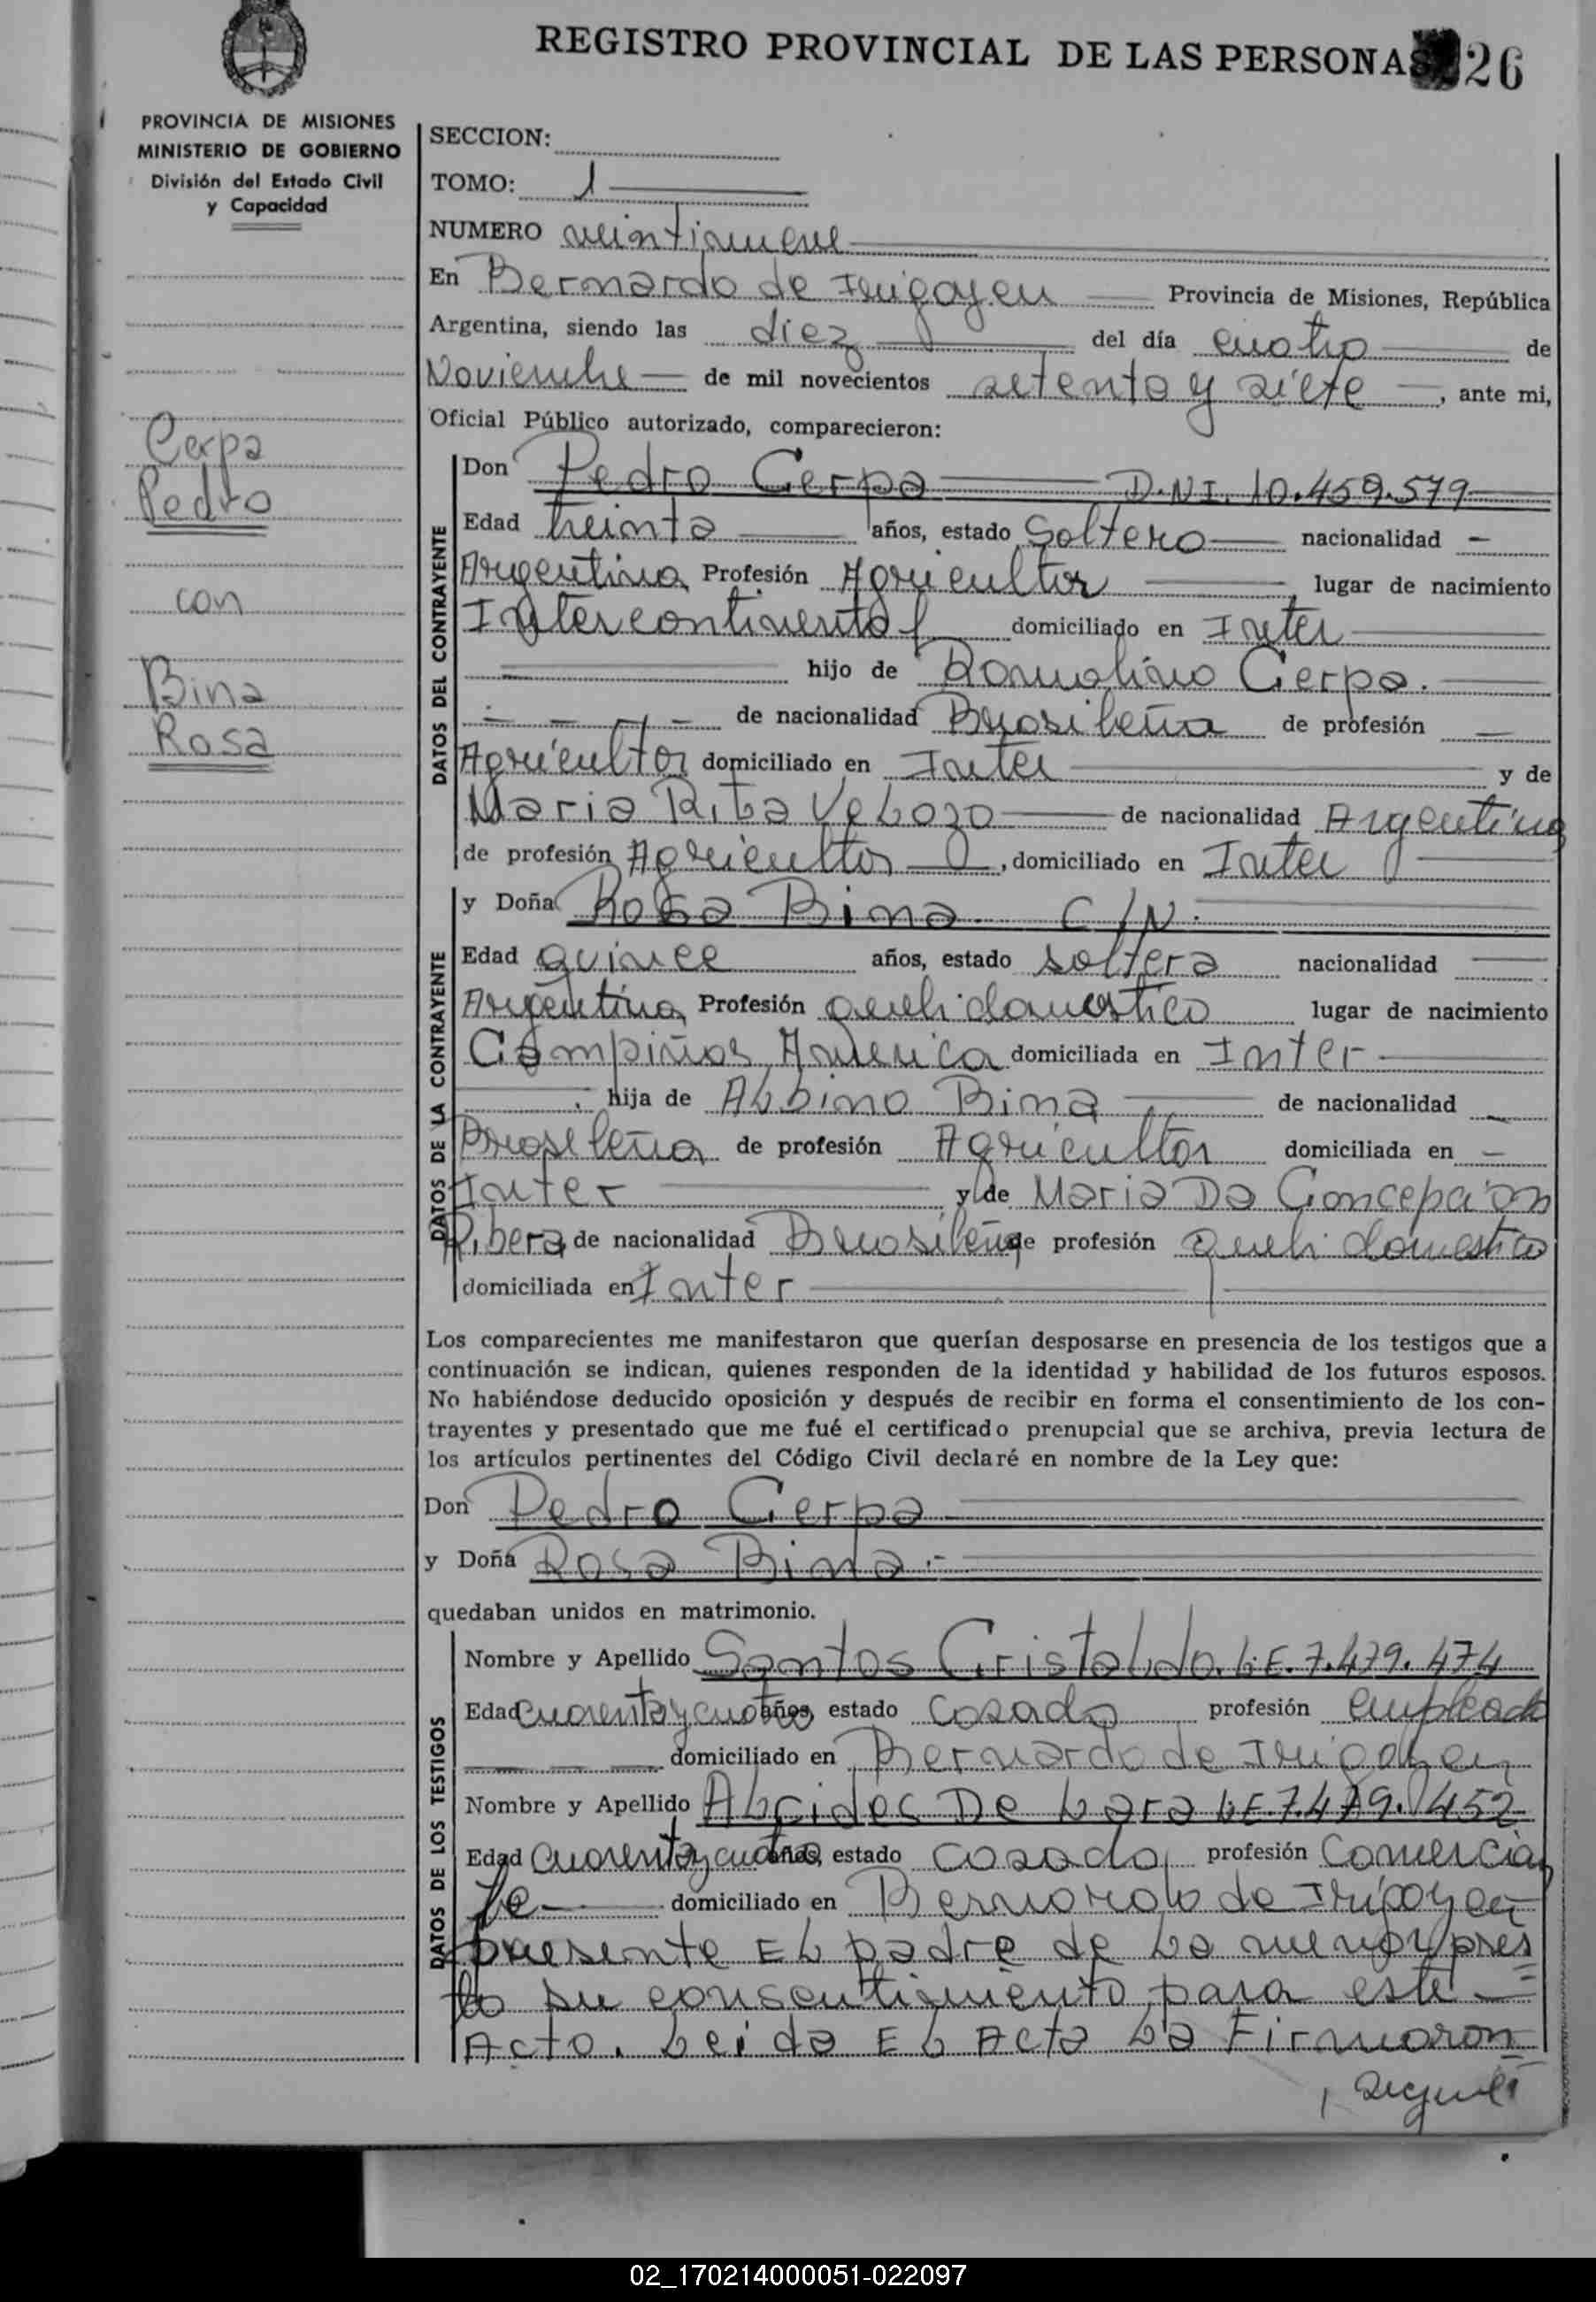 REGISTRO PROVINCIAL DE LAS PERSONAS 26
PROVINCIA DE MISIONES
MINISTERIO DE GOBIERNO
División del Estado Civil
y Capacidad
Cerpa
Pedro
con
Bina
Rosa
SECCION:
TOMO: 1
NUMERO veintinueve
En Bernardo de Irigoyen Provincia de Misiones, República
Argentina, siendo las diez del día cuatro de
Noviembre de mil novecientos setenta y siete, ante mi,
Oficial Público autorizado, comparecieron:
DATOS DEL CONTRAYENTE
Don Pedro Cerpa D.N.I. 10.459.579
Edad treinta años, estado Soltero nacionalidad
Argentina Profesión Agricultor lugar de nacimiento
Intercontinental domiciliado en Inter
hijo de Romalino Cerpa.
de nacionalidad Brasileña de profesión
Agricultor domiciliado en Inter y de
Maria Rita Velozo de nacionalidad Argentina
de profesión Agricultor, domiciliado en Inter
DATOS DE LA CONTRAYENTE
y Doña Rosa Bina. C/N.
Edad quince años, estado soltera nacionalidad
Argentina Profesión queh. domestico lugar de nacimiento
Campiñas America domiciliada en Inter
, hija de Albino Bina de nacionalidad
Brasileña de profesión Agricultor domiciliada en
Inter y de Maria Da Concepcion
Ribera de nacionalidad Brasileña de profesión queh. domestico
domiciliada en Inter
Los comparecientes me manifestaron que querían desposarse en presencia de los testigos que a
continuación se indican, quienes responden de la identidad y habilidad de los futuros esposos.
No habiéndose deducido oposición y después de recibir en forma el consentimiento de los con-
trayentes y presentado que me fué el certificado prenupcial que se archiva, previa lectura de
los artículos pertinentes del Código Civil declaré en nombre de la Ley que:
Don Pedro Cerpa
y Doña Rosa Bina.-
quedaban unidos en matrimonio.
DATOS DE LOS TESTIGOS
Nombre y Apellido Santos Cristaldo. L.E. 7.479.474
Edad cuarenta y cuatro años, estado casado profesión empleado
domiciliado en Bernardo de Irigoyen
Nombre y Apellido Alcides De Lara L.E. 7.479.452
Edad cuarenta y cuatro años, estado casado profesión Comercian
te domiciliado en Bernardo de Irigoyen
presente El padre de la menor pres
to su consentimiento para este
Acto. Leida El Acta La Firmaron
, segun
02_170214000051-022097